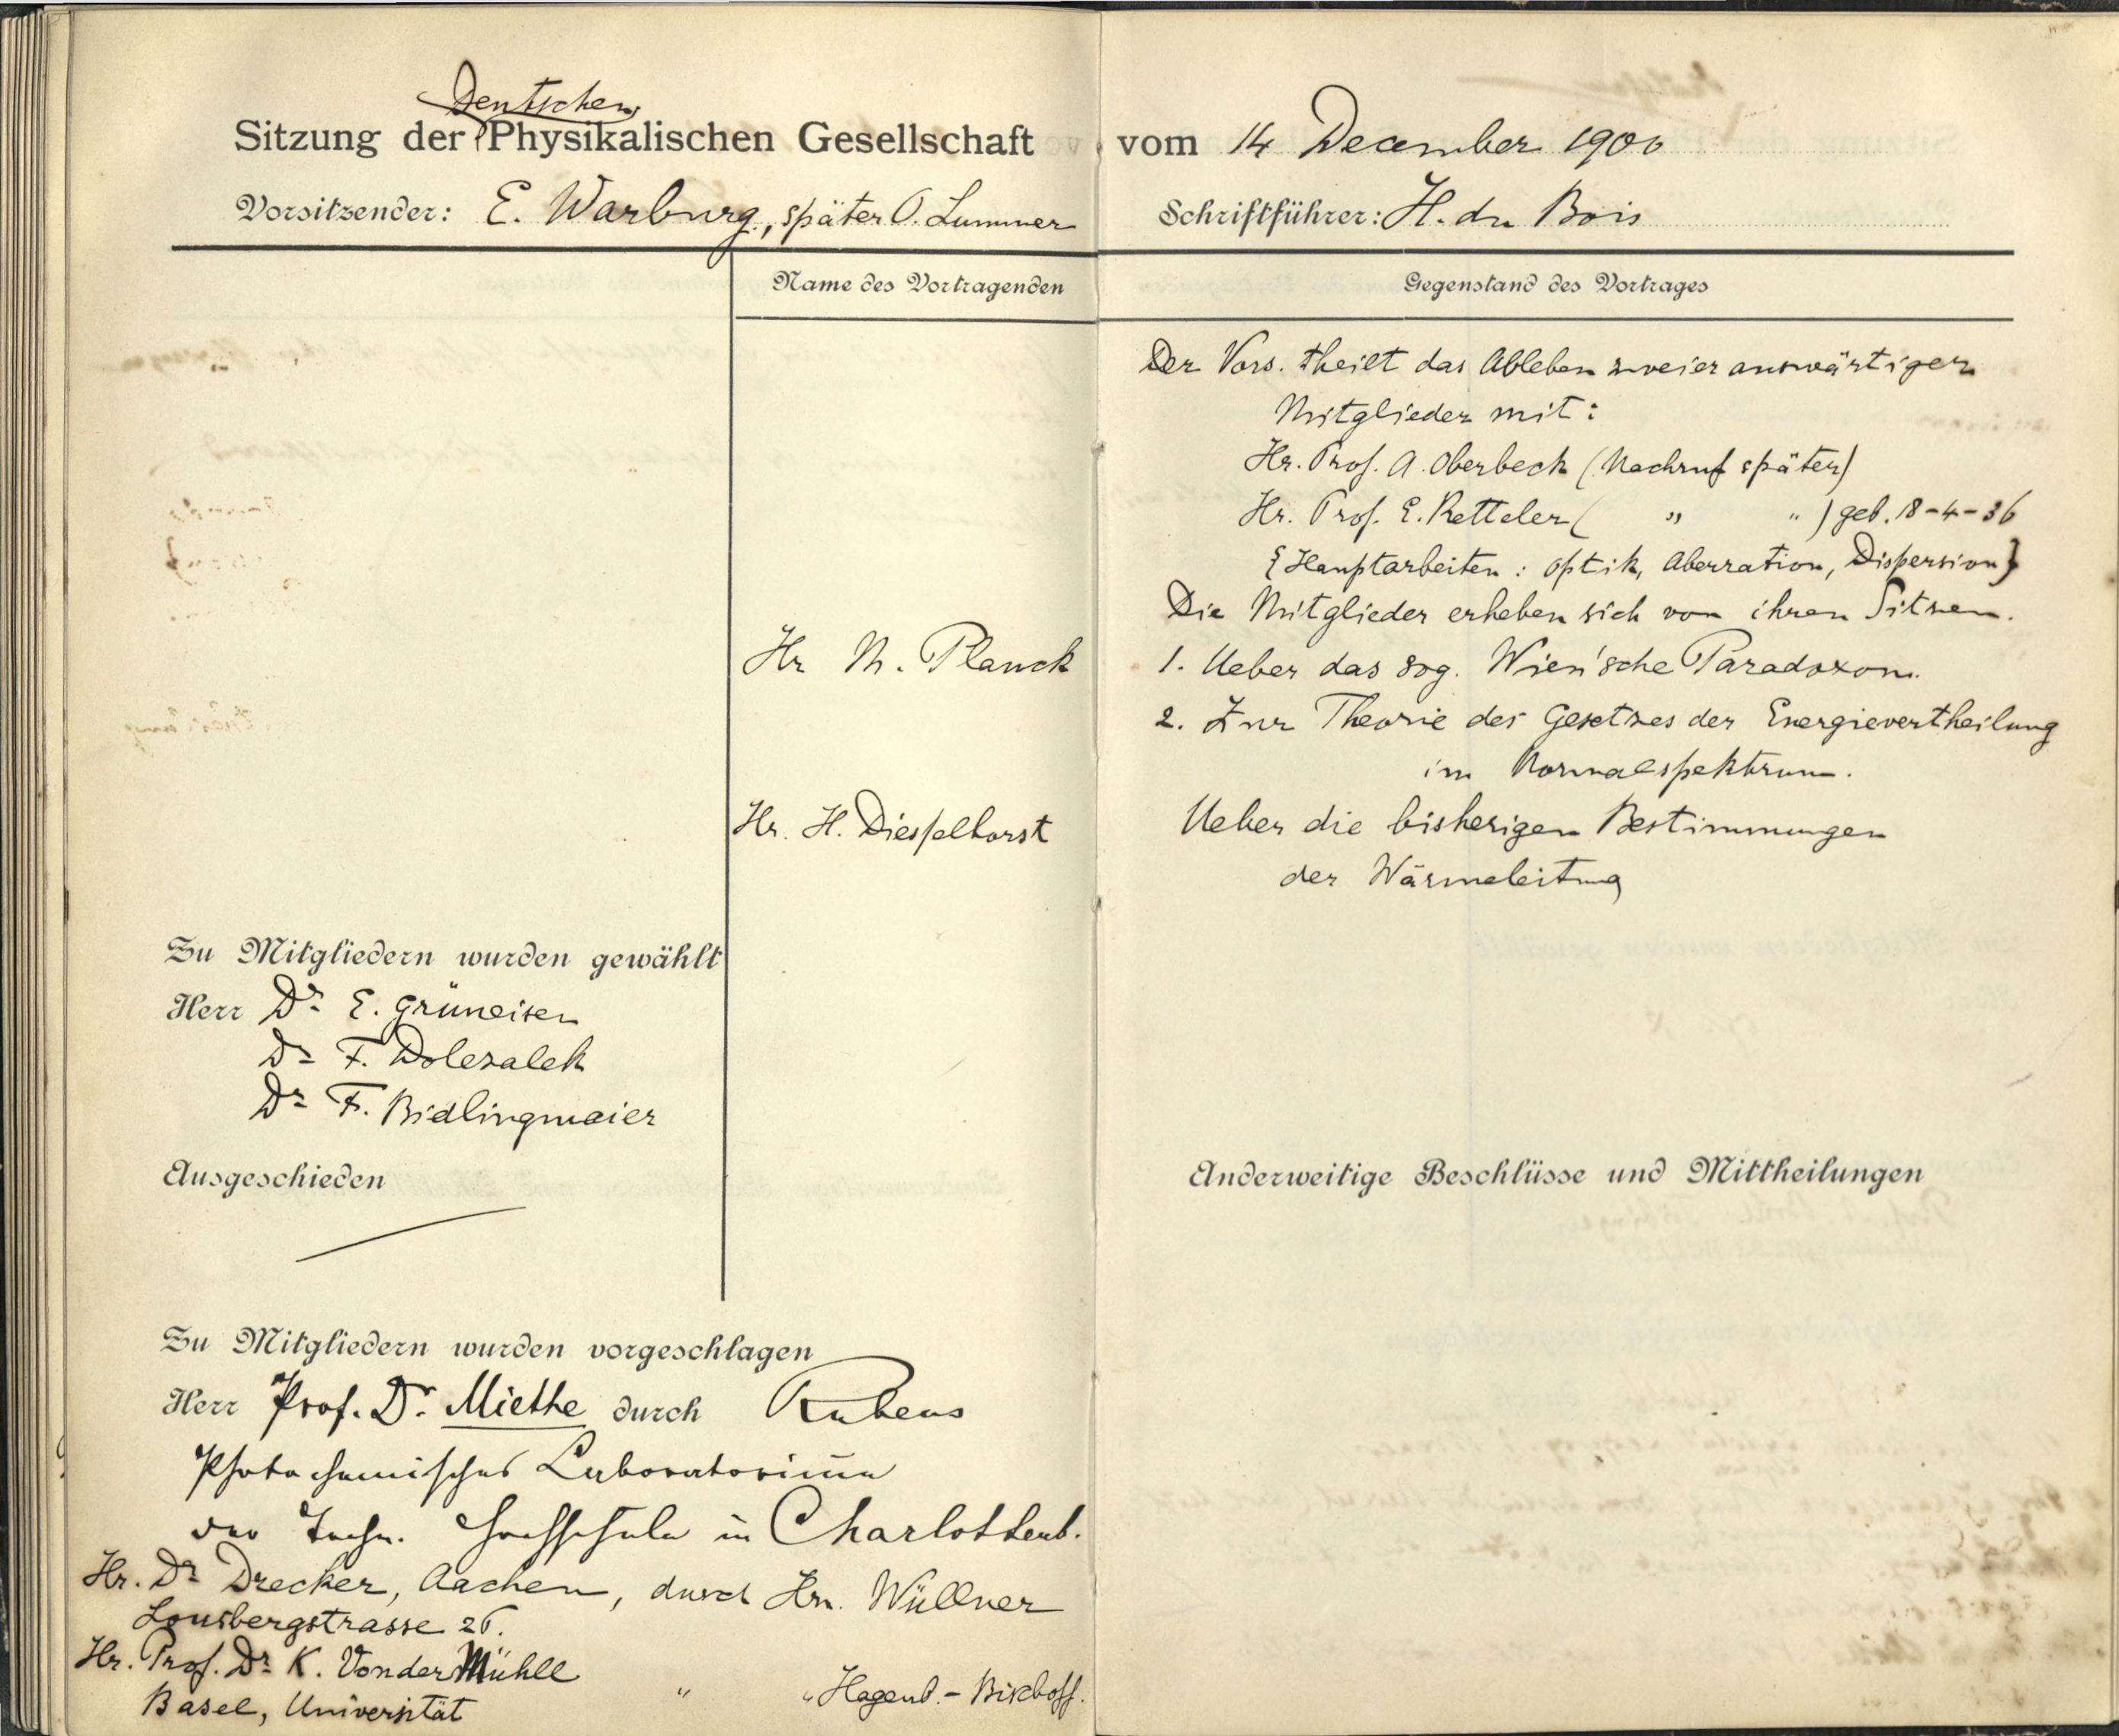 Deutschen
Sitzung der Physikalischen Gesellschaft vom 14 December 1900
Vorsitzender: E. Warburg, später O. Lummer
Schriftführer: H. du Bois
Name des Vortragenden
Gegenstand des Vortrages
Der Vors. theilt das Ableben zweier auswärtiger
Mitglieder mit:
Hr. Prof. A. Oberbeck (Nachruf später)
Hr. Prof. E. Ketteler ( " " ) geb. 18-4-36
{Hauptarbeiten: Optik, Aberration, Dispersion}
Die Mitglieder erheben sich von ihren Sitzen.
Hr M. Planck
1. Ueber das sog. Wien'sche Paradoxon.
2. Zur Theorie des Gesetzes der Energievertheilung
im Normalspektrum.
Hr. H. Diesselhorst
Ueber die bisherigen Bestimmungen
der Wärmeleitung
Zu Mitgliedern wurden gewählt
Herr Dr E. Grüneisen
Dr F. Dolezalek
Dr F. Bidlingmaier
Ausgeschieden
Anderweitige Beschlüsse und Mittheilungen
Zu Mitgliedern wurden vorgeschlagen
Herr Prof. Dr. Miethe durch Rubens
Photochemisches Laboratorium
der Techn. Hochschule in Charlottenb.
Hr. Dr Drecker, Aachen, durch Hrn. Wüllner
Lousbergstrasse 26.
Hr. Prof. Dr K. VonderMühll
Basel, Universität " " Hagenb.-Bischoff.